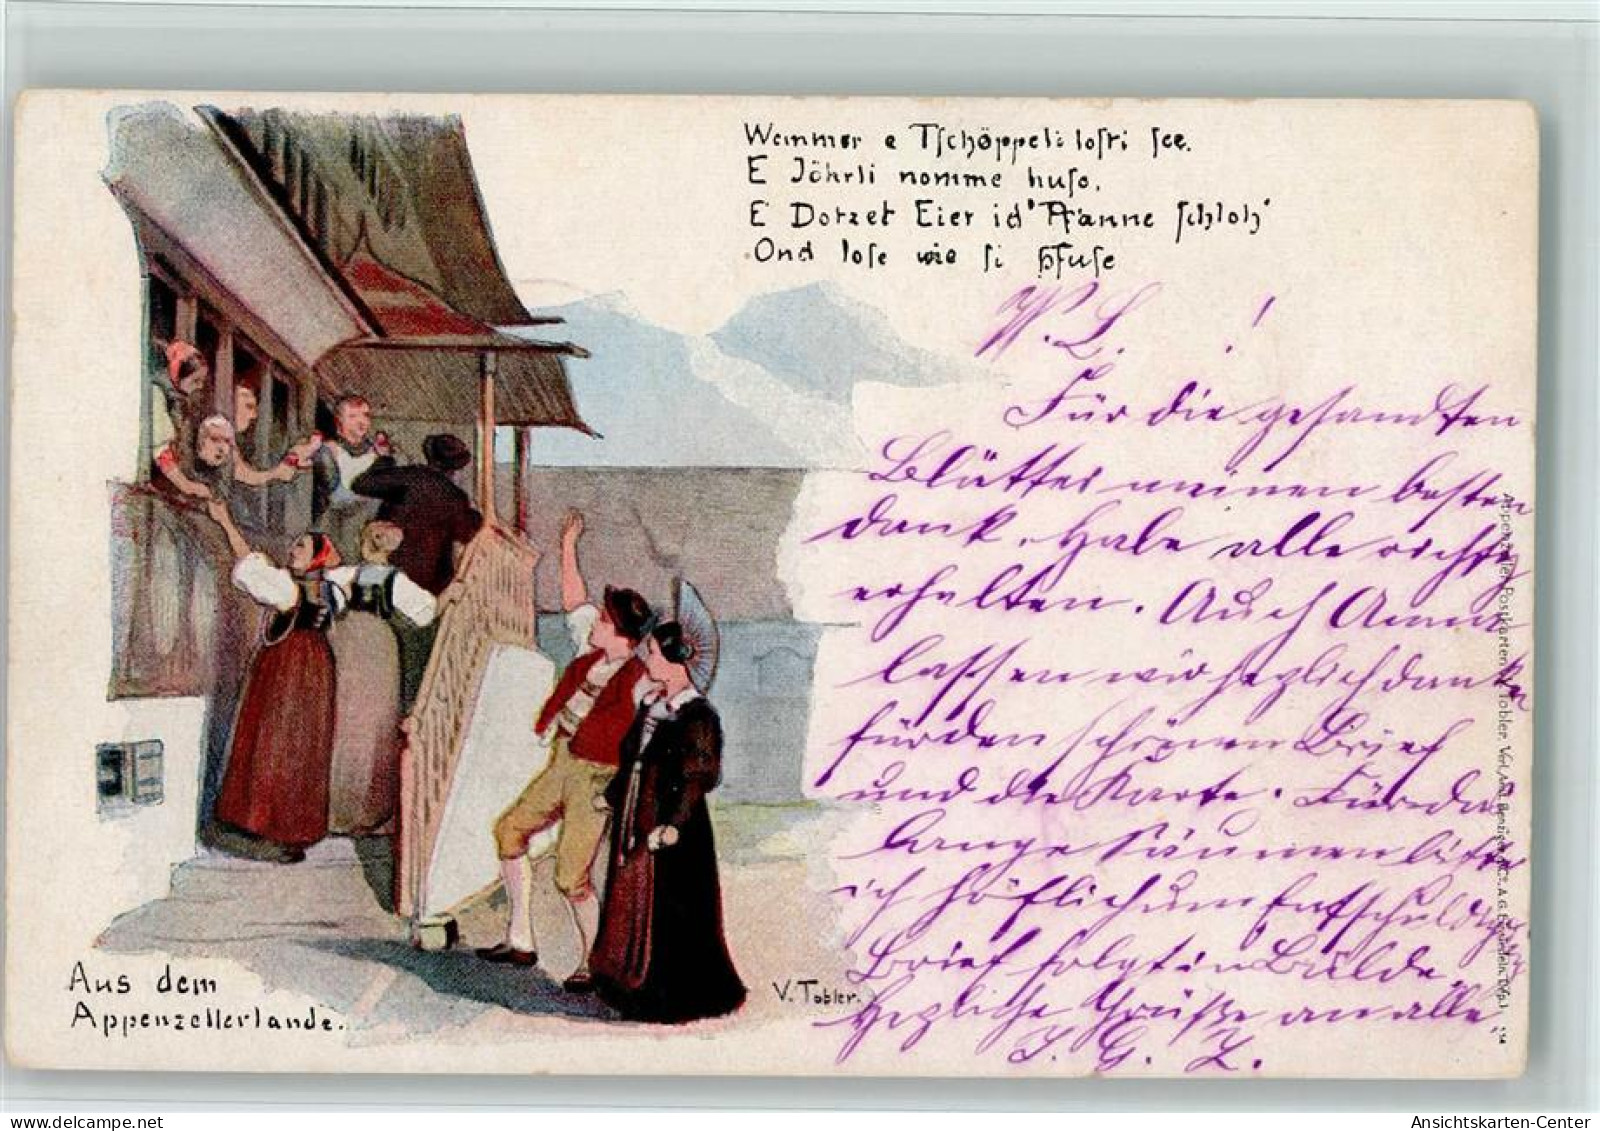 Wemmer e Tschöppeli losti see.
E Jöhrli nomme huse.
E Dotzet Eier id' Pfanne schloh'
Ond lose wie si pfuse
W. L. !
Für die gesandten
Blätter meinen besten
Dank. Habe alle richtig
erhalten. Auch Anna
lassen wir herzlich danken
für den schönen Brief
und die Karte. Für das
lange Säumen bitte
ich höflich um Entschuldig
Brief folgt in Bälde.
Herzliche Grüße an alle,
J. G. Z.
V. Tobler.
Aus dem
Appenzellerlande.
Appenzeller Postkarten V. Tobler. Verl. Benziger & Co. A. G. Einsiedeln
Ansichtskarten-Center